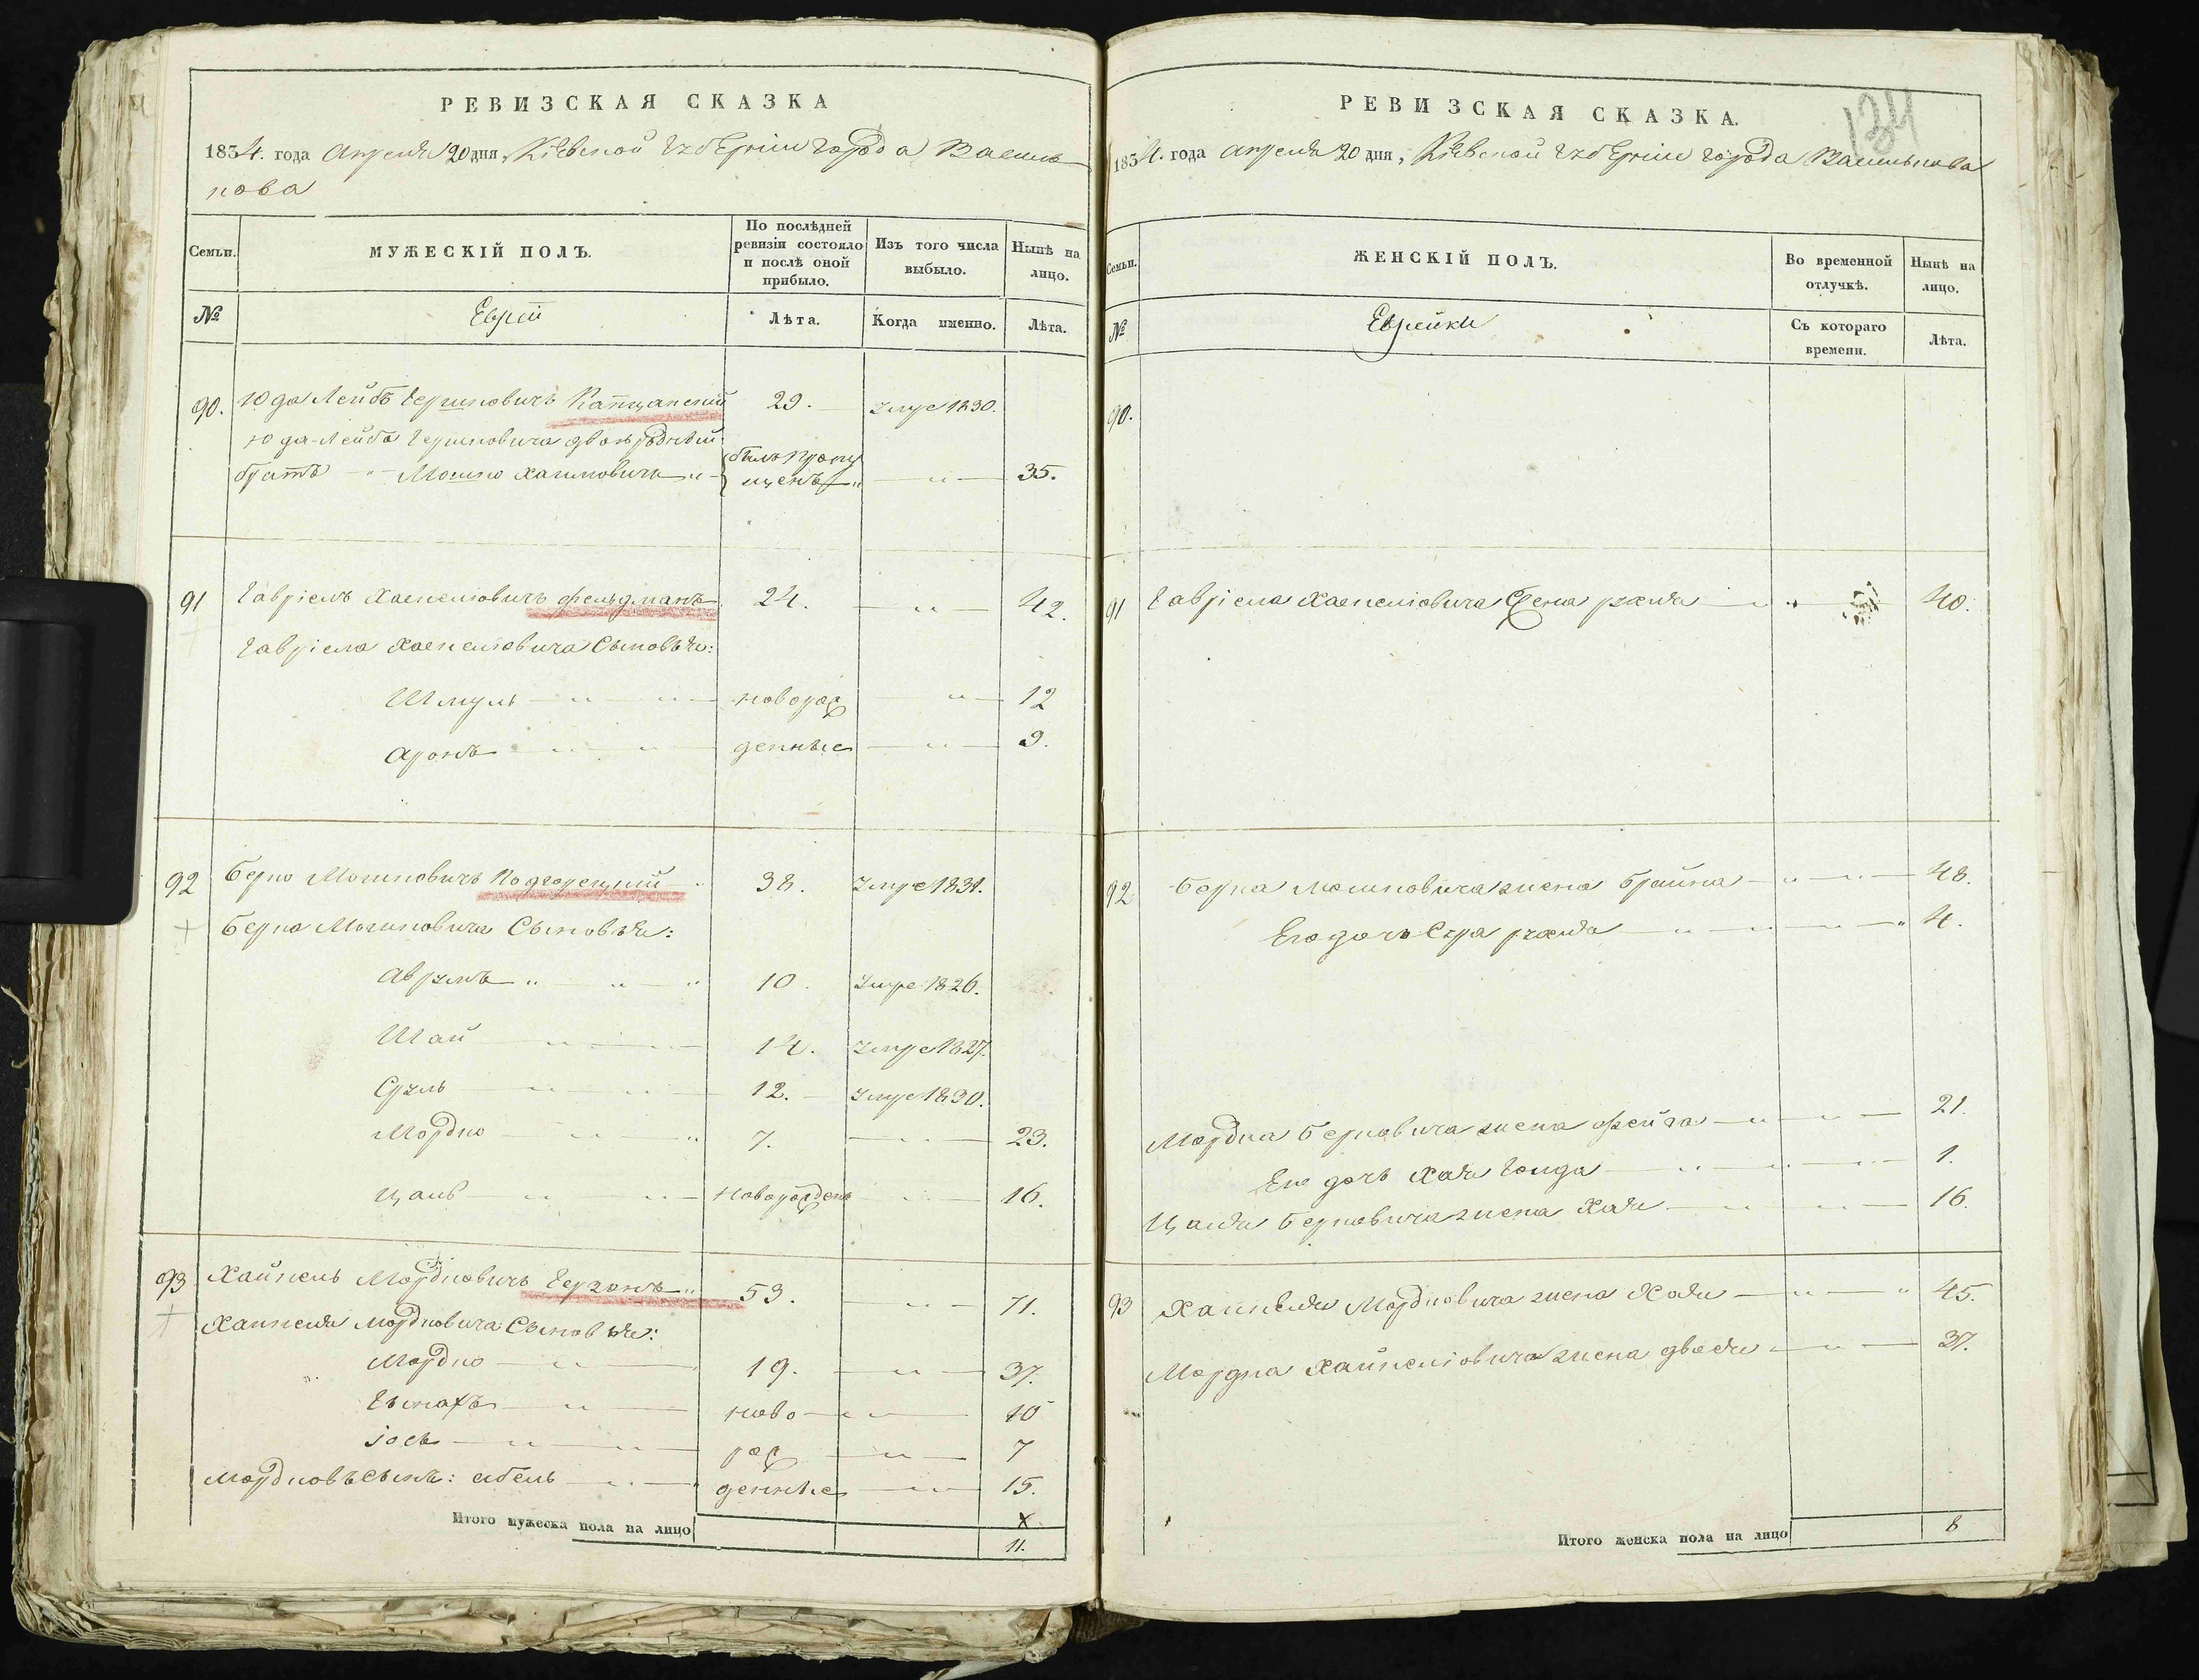 РЕВИЗСКАЯ СКАЗКА
1834. года Апреля 20 дня, Кіевской Губерніи города Василь-
кова
Семьи.
МУЖЕСКІЙ ПОЛЪ.
По послѣдней ревизіи состояло и послѣ оной прибыло.
Изъ того числа выбыло.
Нынѣ на лицо.
№
Евреи
Лѣта.
Когда именно.
Лѣта.
90. Юда Лейбъ Гершковичъ Капцанский 29. умре 1830.
Юда-Лейба Гершковича двоюродный
братъ Мошко Хаимовичъ былъ пропу
щенъ 35.
91 Гавріель Хаскеліовичъ Фельдманъ 24. 42.
Гавріела Хаскеліовича Сыновья:
Шмуль новорож 12
Аронъ денные 9.
92 Берко Мошковичъ Подгорецкий 38. умре 1831.
Берка Мошковича Сыновья:
Аврумъ 10. умре 1826.
Шай 14. умре 1827.
Сруль 12. умре 1830.
Мордко 7. 23.
Цаль Новорожденъ 16.
93 Хайкель Мордковичъ Герзонъ 53. 71.
Хайкеля Мордковича Сыновья:
Мордко 19. 37.
ново 10
Іось рож 7
Мордковъ Сынъ: денные 15.
Итого мужеска пола на лицо
11.
РЕВИЗСКАЯ СКАЗКА.
134
1834. года Апреля 20 дня, Кіевской Губерніи города Василькова
Семьи.
ЖЕНСКІЙ ПОЛЪ.
Во временной отлучкѣ.
Нынѣ на лицо.
№
Еврейки
Съ котораго времени.
Лѣта.
90.
91 Гавріела Хаскеліовича Жена Рухля 40.
92 Берка Мошковича жена Брайна 48.
Его дочь Сура Рухля 4.
Мордка Берковича жена Фейга 21.
Его дочь Хая Голда 1.
Цаля Берковича жена Хая 16.
93 Хайкеля Мордковича жена Хая 45.
Мордка Хайкеліовича жена Двося 37.
Итого женска пола на лицо 8